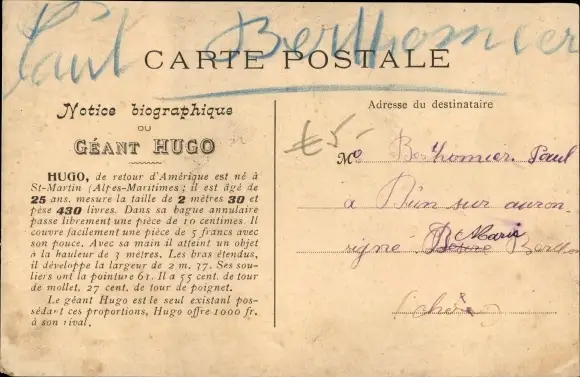 Paul Berthomier
CARTE POSTALE
Notice biographique
OU
GÉANT HUGO
HUGO, de retour d'Amérique est né à
St-Martin (Alpes-Maritimes ; il est âgé de
25 ans, mesure la taille de 2 mètres 30 et
pèse 430 livres. Dans sa bague annulaire
passe librement une pièce de 10 centimes. Il
couvre facilement une pièce de 5 francs avec
son pouce. Avec sa main il atteint un objet
à la hauleur de 3 mètres. Les bras étendus,
il développe la largeur de 2 m. 37. Ses sou-
liers ont la pointure 61. Il a 55 cent. de tour
de mollet, 27 cent. de tour de poignet.
Le géant Hugo est le seul existant pos-
sédant ces proportions, Hugo offre 1000 fr.
à son rival.
Adresse du destinataire
€5-
Mo Berthomier Paul
a Dun sur auron
signé Maria Bertho
(cher)